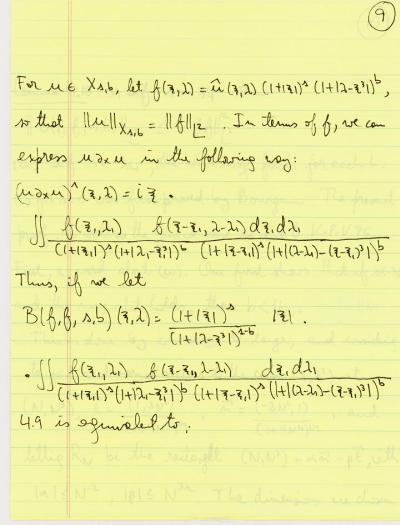 9
For u ∈ X_{s,b}, let f(ξ,λ) = û(ξ,λ) (1+|ξ|)^s (1+|λ-ξ^3|)^b,
so that ||u||_{X_{s,b}} = ||f||_{L^2}. In terms of f, we can
express u ∂_x u in the following way:
(u∂_x u)^(ξ,λ) = i ξ ·
∬ f(ξ_1,λ_1) f(ξ-ξ_1, λ-λ_1) dξ_1 dλ_1
(1+|ξ_1|)^s (1+|λ_1-ξ_1^3|)^b (1+|ξ-ξ_1|)^s (1+|(λ-λ_1)-(ξ-ξ_1)^3|)^b
Thus, if we let
B(f,f,s,b)(ξ,λ) = (1+|ξ|)^s |ξ|.
(1+|λ-ξ^3|)^{1-b}
.∬ f(ξ_1,λ_1) f(ξ-ξ_1, λ-λ_1) dξ_1 dλ_1
(1+|ξ_1|)^s (1+|λ_1-ξ_1^3|)^b (1+|ξ-ξ_1|)^s (1+|(λ-λ_1)-(ξ-ξ_1)^3|)^b
4.9 is equivalent to: